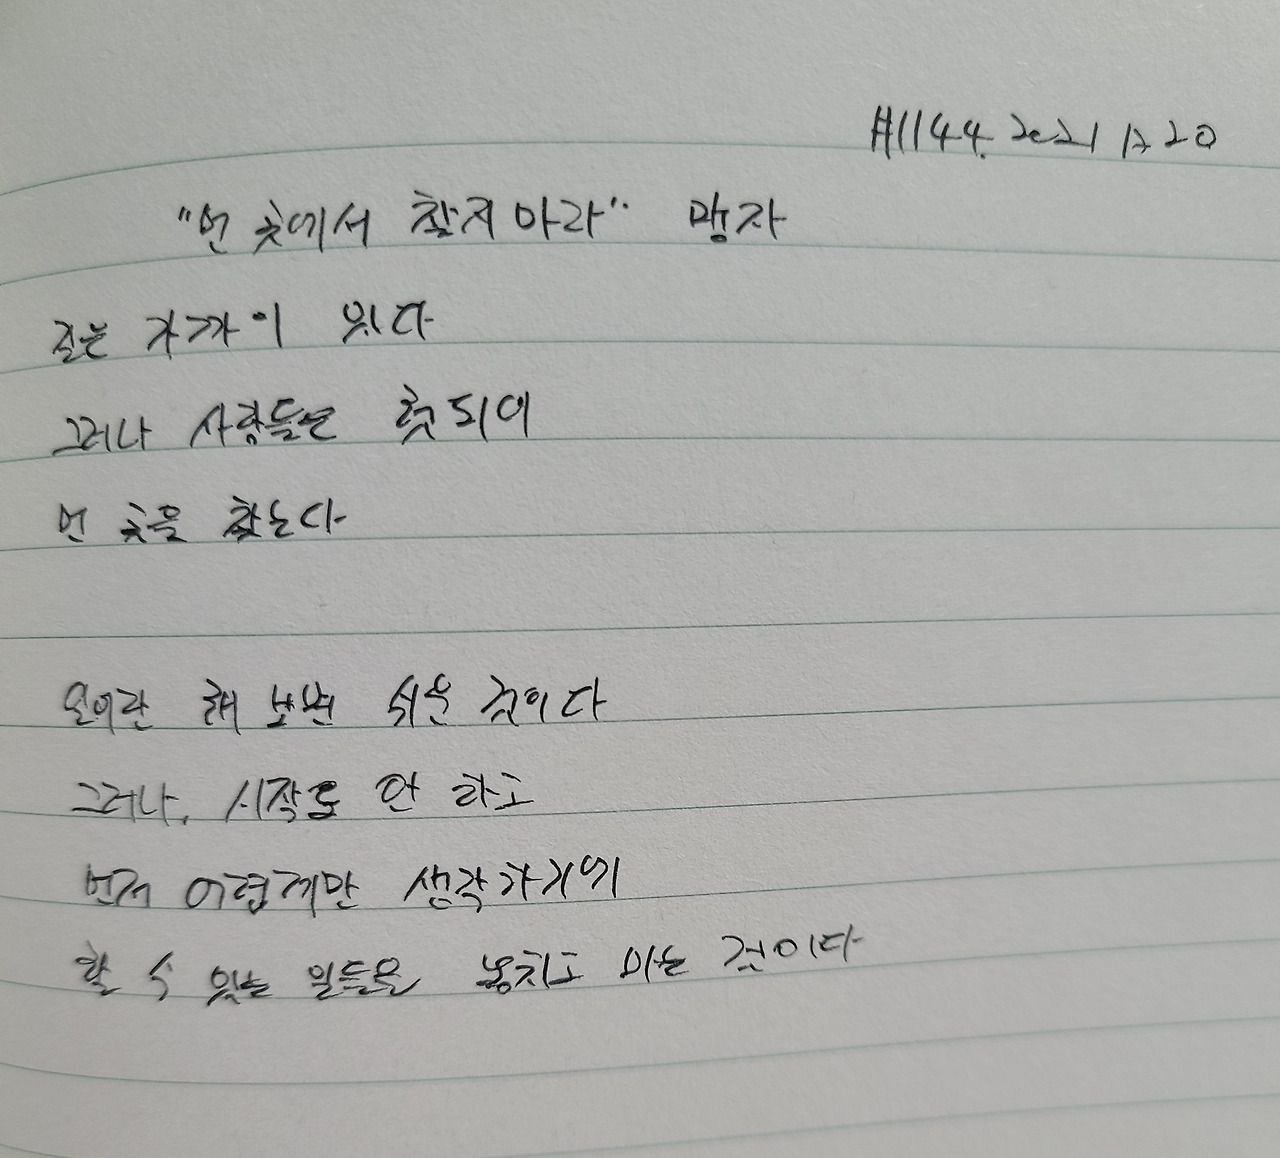 #1144. 2021 12 20
"먼 곳에서 찾지 마라" 맹자
길은 가까이 있다
그러나 사람들은 헛되이
먼 곳을 찾는다
일이란 해 보면 쉬운 것이다
그러나, 시작도 안 하고
먼저 어렵게만 생각하기에
할 수 있는 일들을 놓치고 마는 것이다